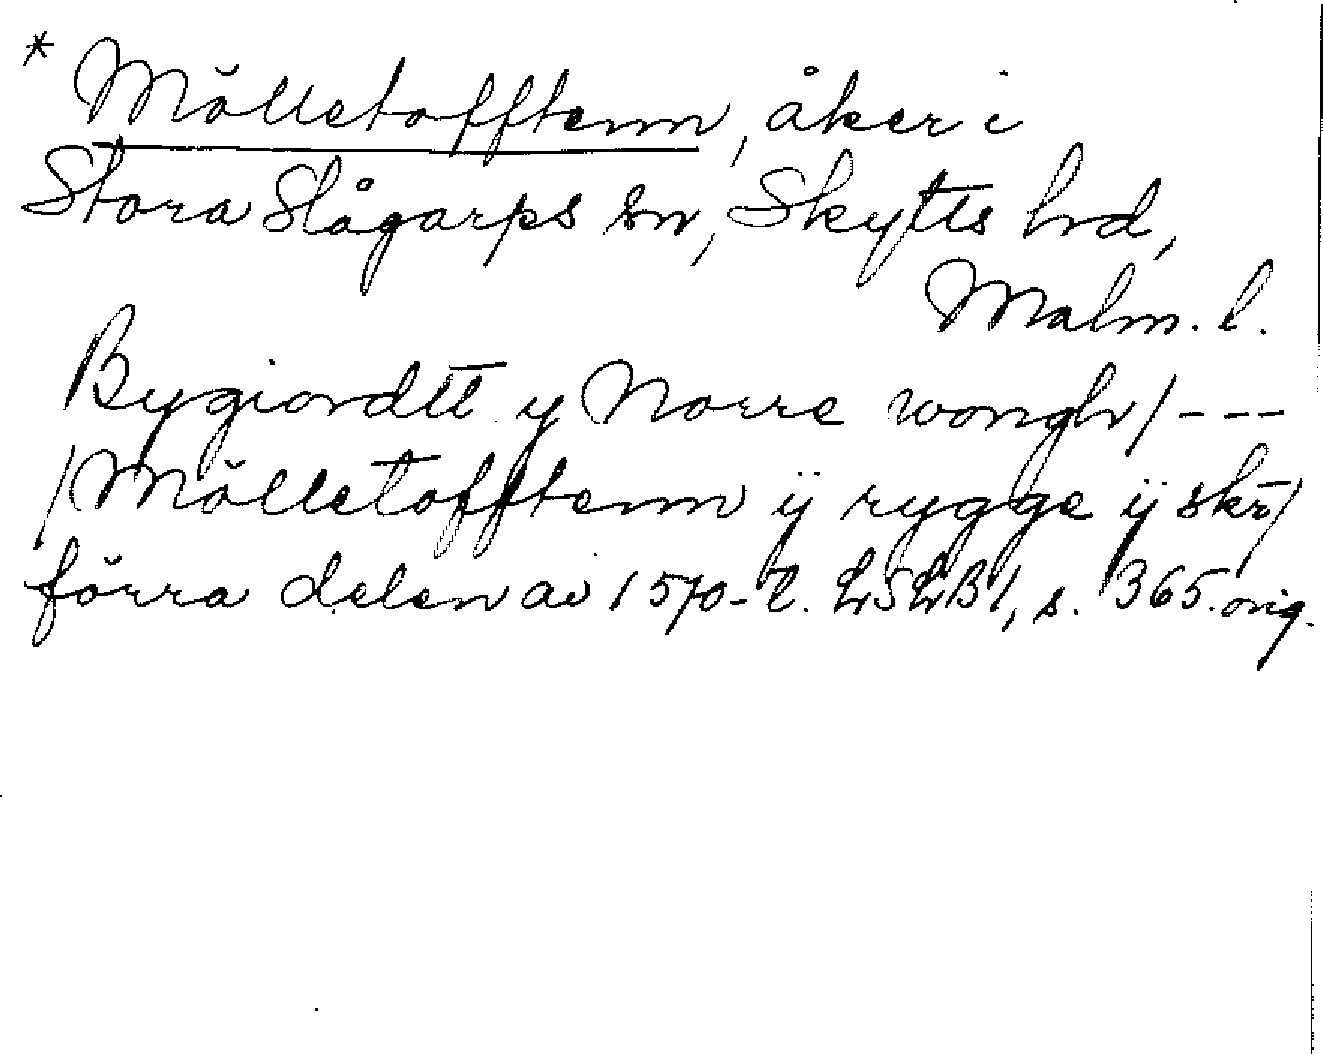 * Mölletofftenn, åker i
Stora Slågarps sn, Skytts hd,
Malm. l.
Bygiordtt y Norre wongh/---
/Mölletofftenn ÿ rygge ÿ skr̄/
förra delen av 1570-t. LSLB1, s. 365. orig.